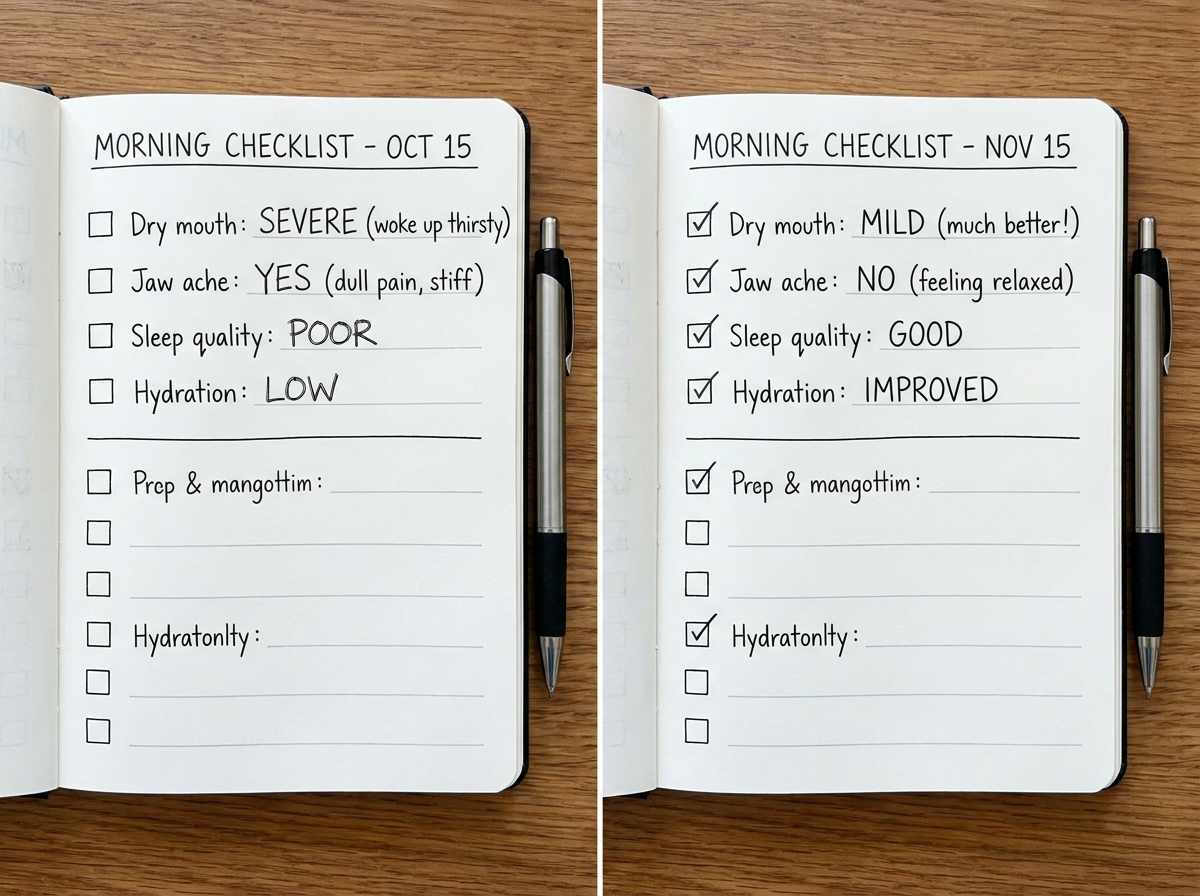 MORNING CHECKLIST - OCT 15
Dry mouth: SEVERE (woke up thirsty)
Jaw ache: YES (dull pain, stiff)
Sleep quality: POOR
Hydration: LOW
Prcp & mangottim:
Hydratonlty:
MORNING CHECKLIST - NOV 15
Dry mouth: MILD (much better!)
Jaw ache: NO (feeling relaxed)
Sleep quality: GOOD
Hydration: IMPROVED
Prep & mangottim:
Hydratonlty: